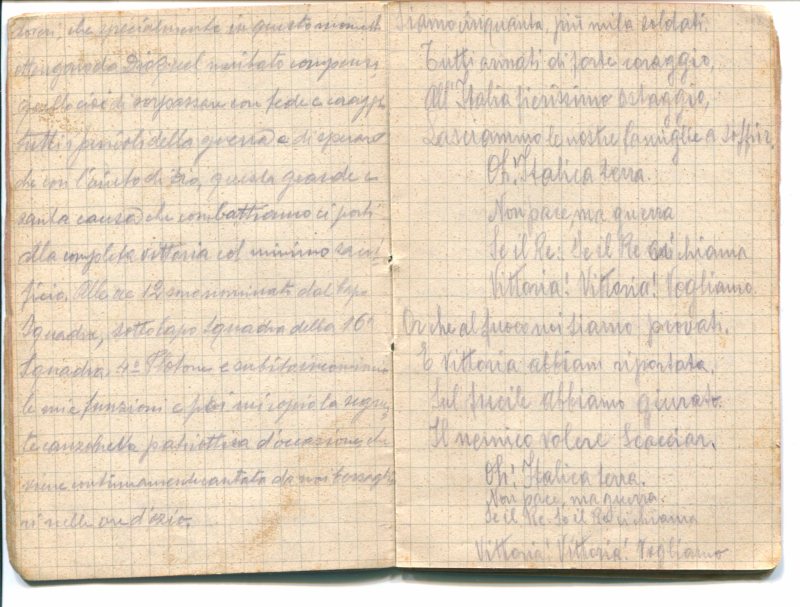 doveri, che specialmente in questo momento
vengono da Dio quel meritato compenso,
quello cioè di sorpassare con fede e coraggio
tutti i pericoli della guerra e di sperare
che con l'aiuto di Dio, questa grande e
santa causa che combattiamo ci porti
alla completa vittoria col minimo sacri-
ficio. Alle ore 12 sono nominato dal Capo
Squadra, sotto Capo Squadra della 16a
Squadra 4° Plotone e subito incomincio
le mie funzioni e poi mi copio la seguen
te canzonetta patriottica d'occasione che
viene continuamente cantata da noi bersaglie
ri nelle ore d'ozio.
Siamo cinquanta, più mila soldati.
Tutti armati di forte coraggio,
All'Italia fierissimo ostaggio,
Lasciammo le nostre famiglie a soffrir.
Oh! Italica terra.
Non pace, ma guerra
Se il Re: Se il Re ci chiama
Vittoria! Vittoria! Vogliamo.
Or che al fuoco noi siamo provati.
E Vittoria abbiam riportata,
Sul fucile abbiamo giurato.
Il nemico volere Scacciar.
Oh! Italica terra.
Non pace, ma guerra.
Se il Re: Se il Re ci chiama
Vittoria! Vittoria! Vogliamo